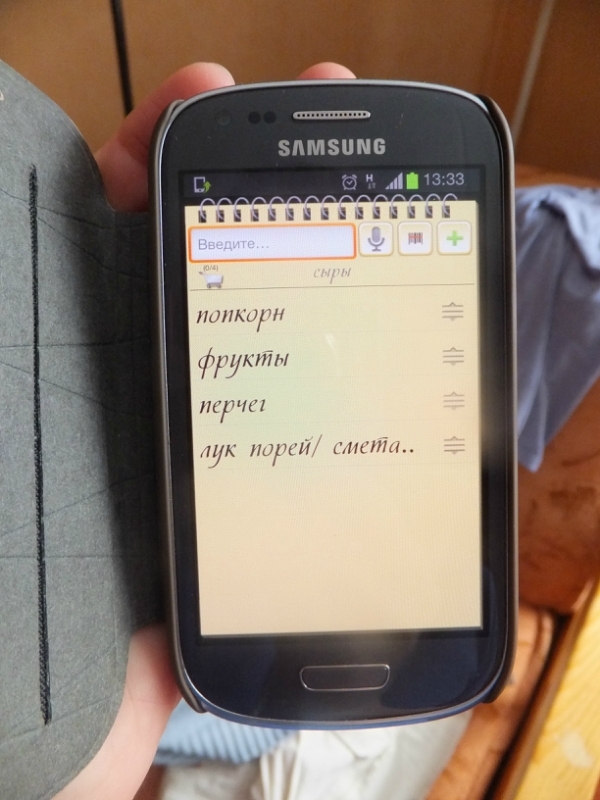 SAMSUNG
H 13:33
Введите...
(0/4)
сыры
попкорн
фрукты
перчег
лук порей/ смета..